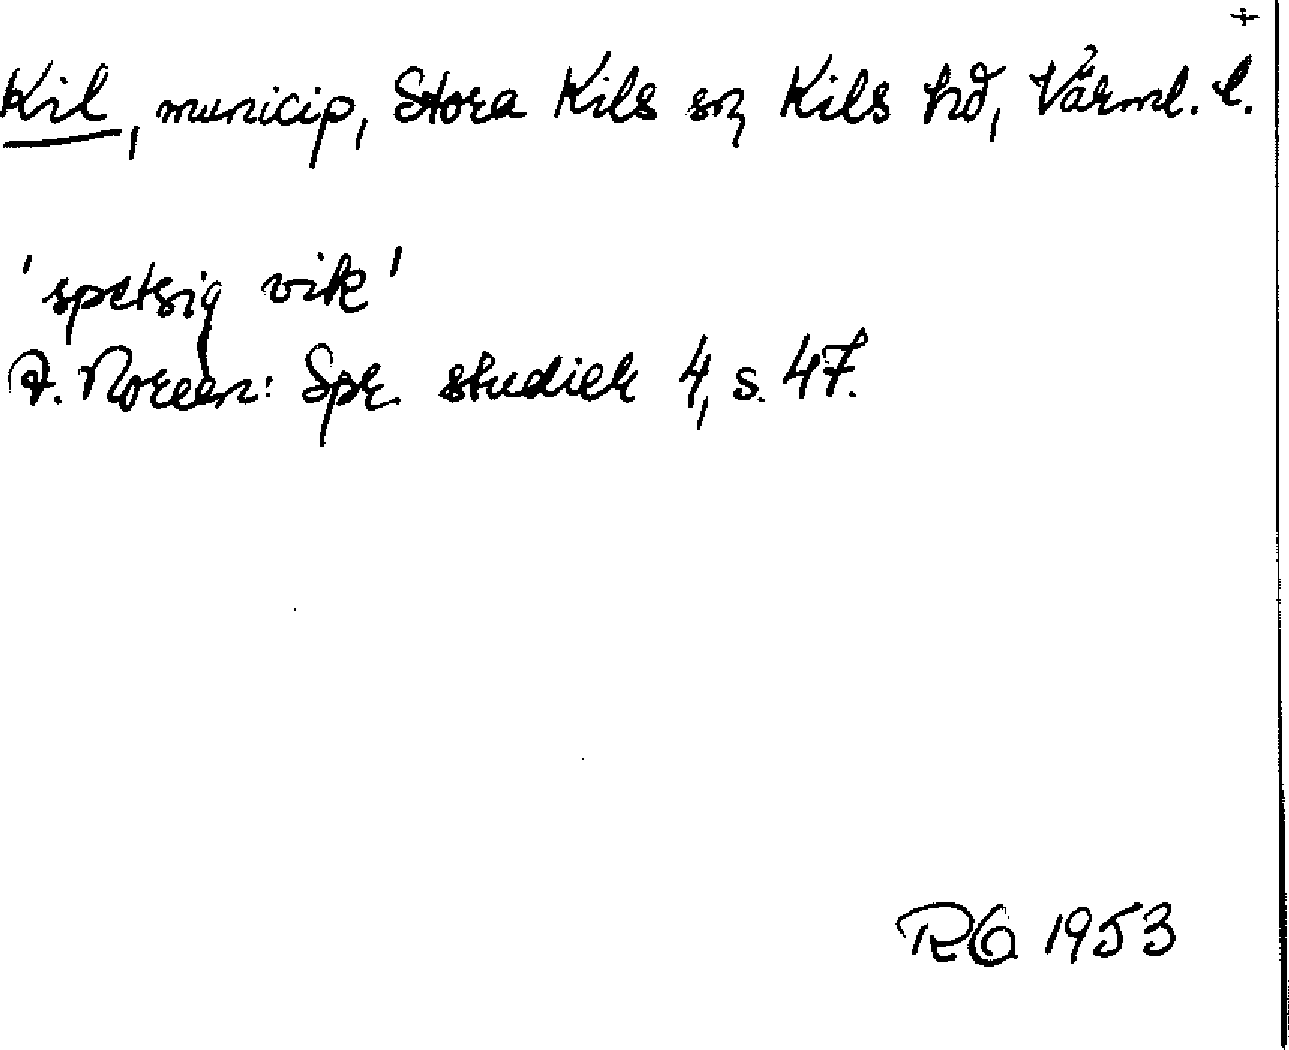 +
Kil, municip, Stora Kils sn, Kils hd, Värml. l.
'spetsig vik'
A. Noreen: Spr. studier 4, s. 47.
RG 1953